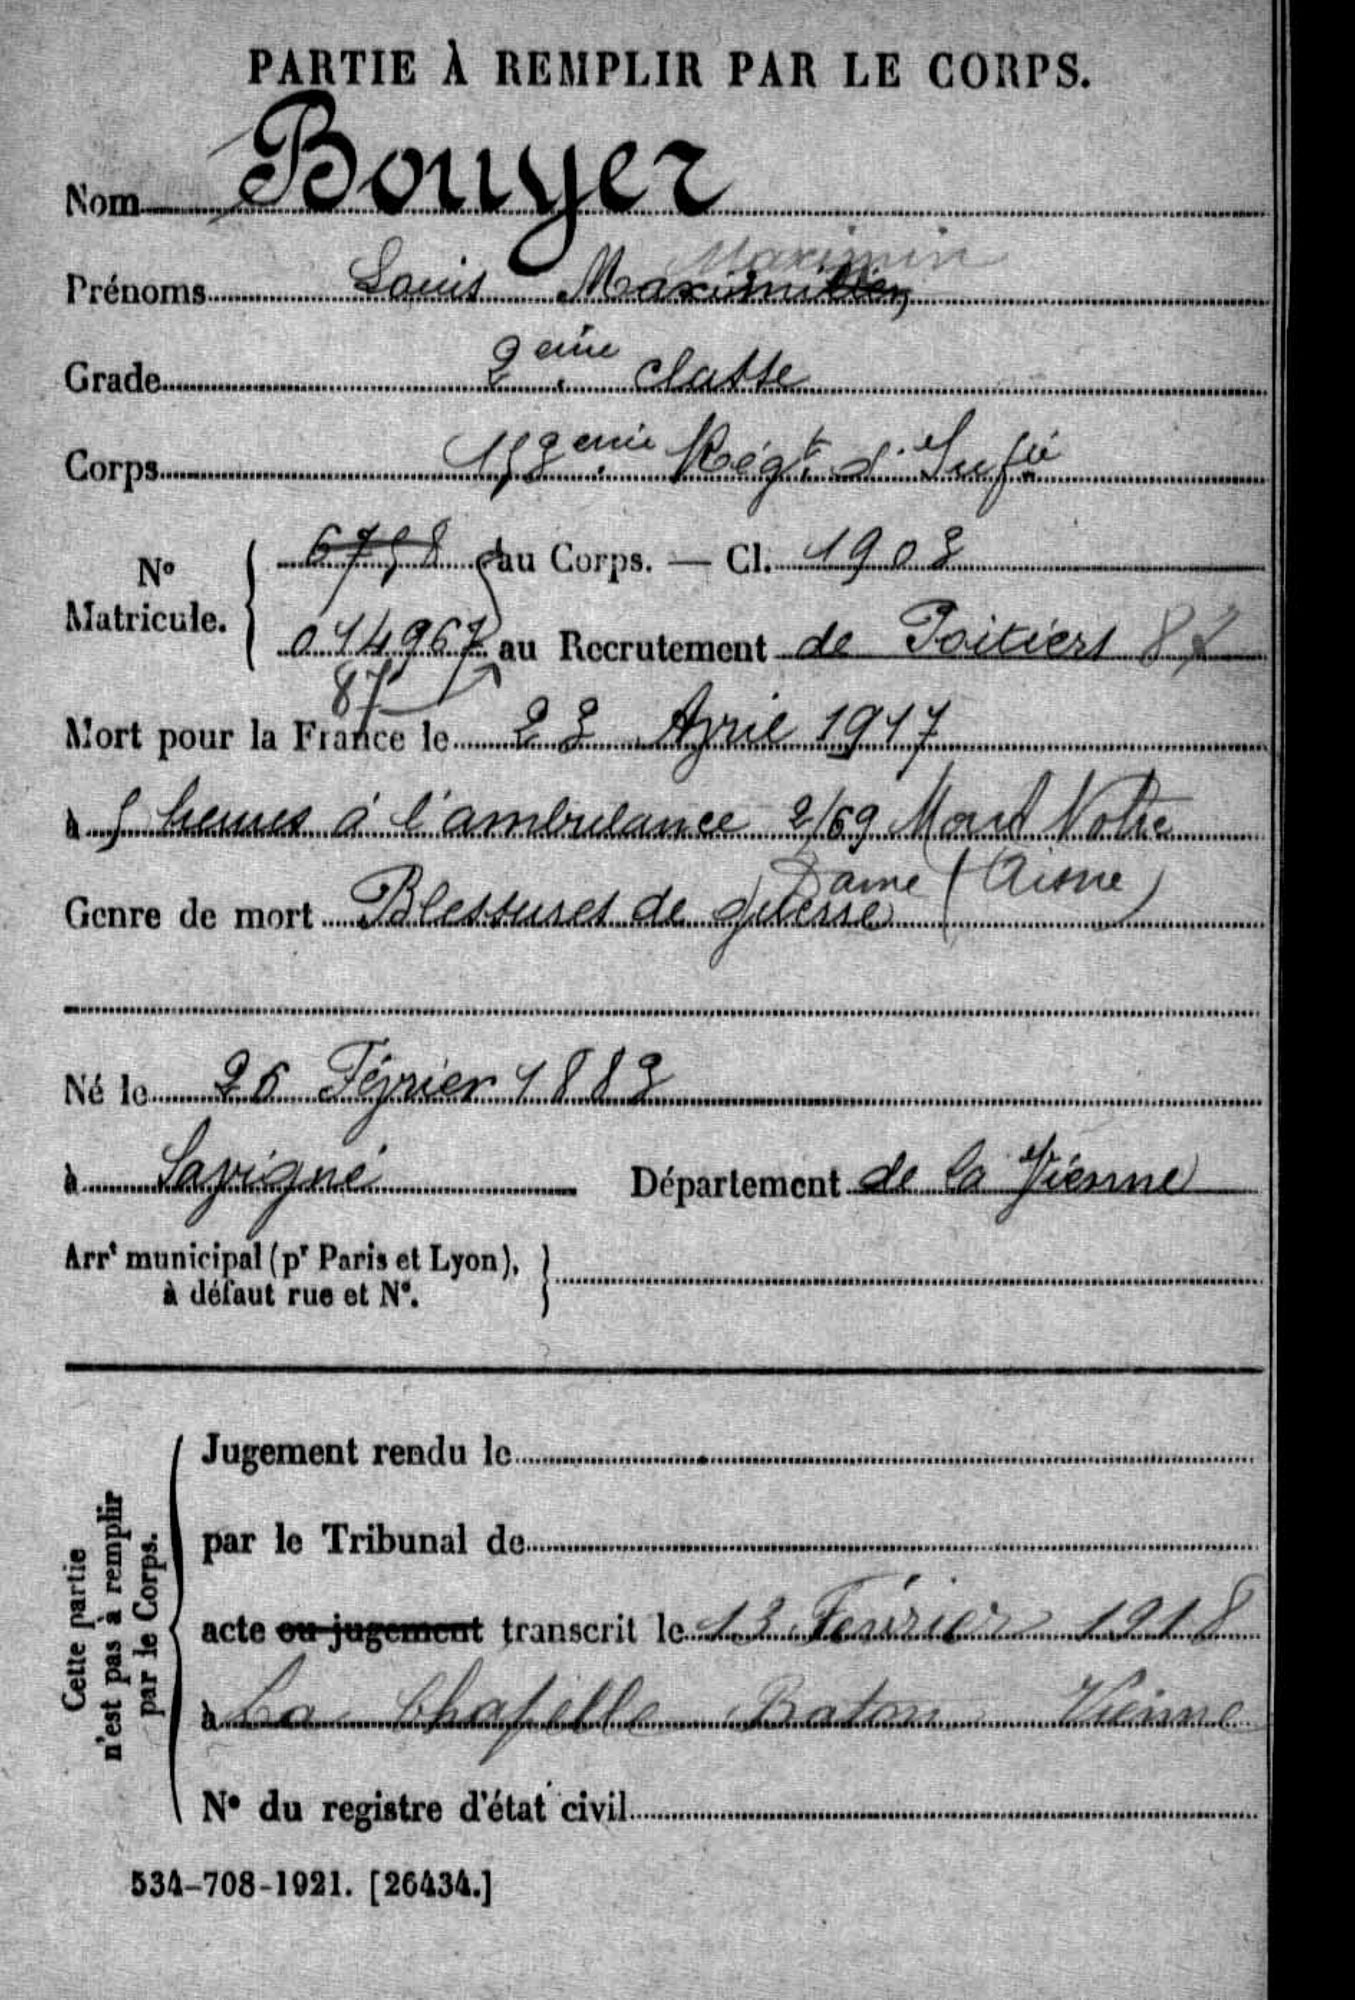 PARTIE À REMPLIR PAR LE CORPS.
Nom Bouyer
Maximin
Prénoms Louis Maximilien
Grade 2eme classe
Corps 152eme Régt d'Infie
6758 au Corps. — Cl. 1902
No
Matricule.
014967 au Recrutement de Poitiers 87
87
Mort pour la France le 22 Avril 1917
à 5 heures à l'ambulance 2/69 Mont Notre
Dame (Aisne)
Genre de mort Blessures de guerre
Né le 26 Février 1882
à Savigné Département de la Vienne
Arrt municipal (pr Paris et Lyon),
à défaut rue et No.
Cette partie
n'est pas à remplir
par le Corps.
Jugement rendu le
par le Tribunal de
acte ou jugement transcrit le 13 Février 1918
à La Chapelle Baton Vienne
No du registre d'état civil
534-708-1921. [26434.]